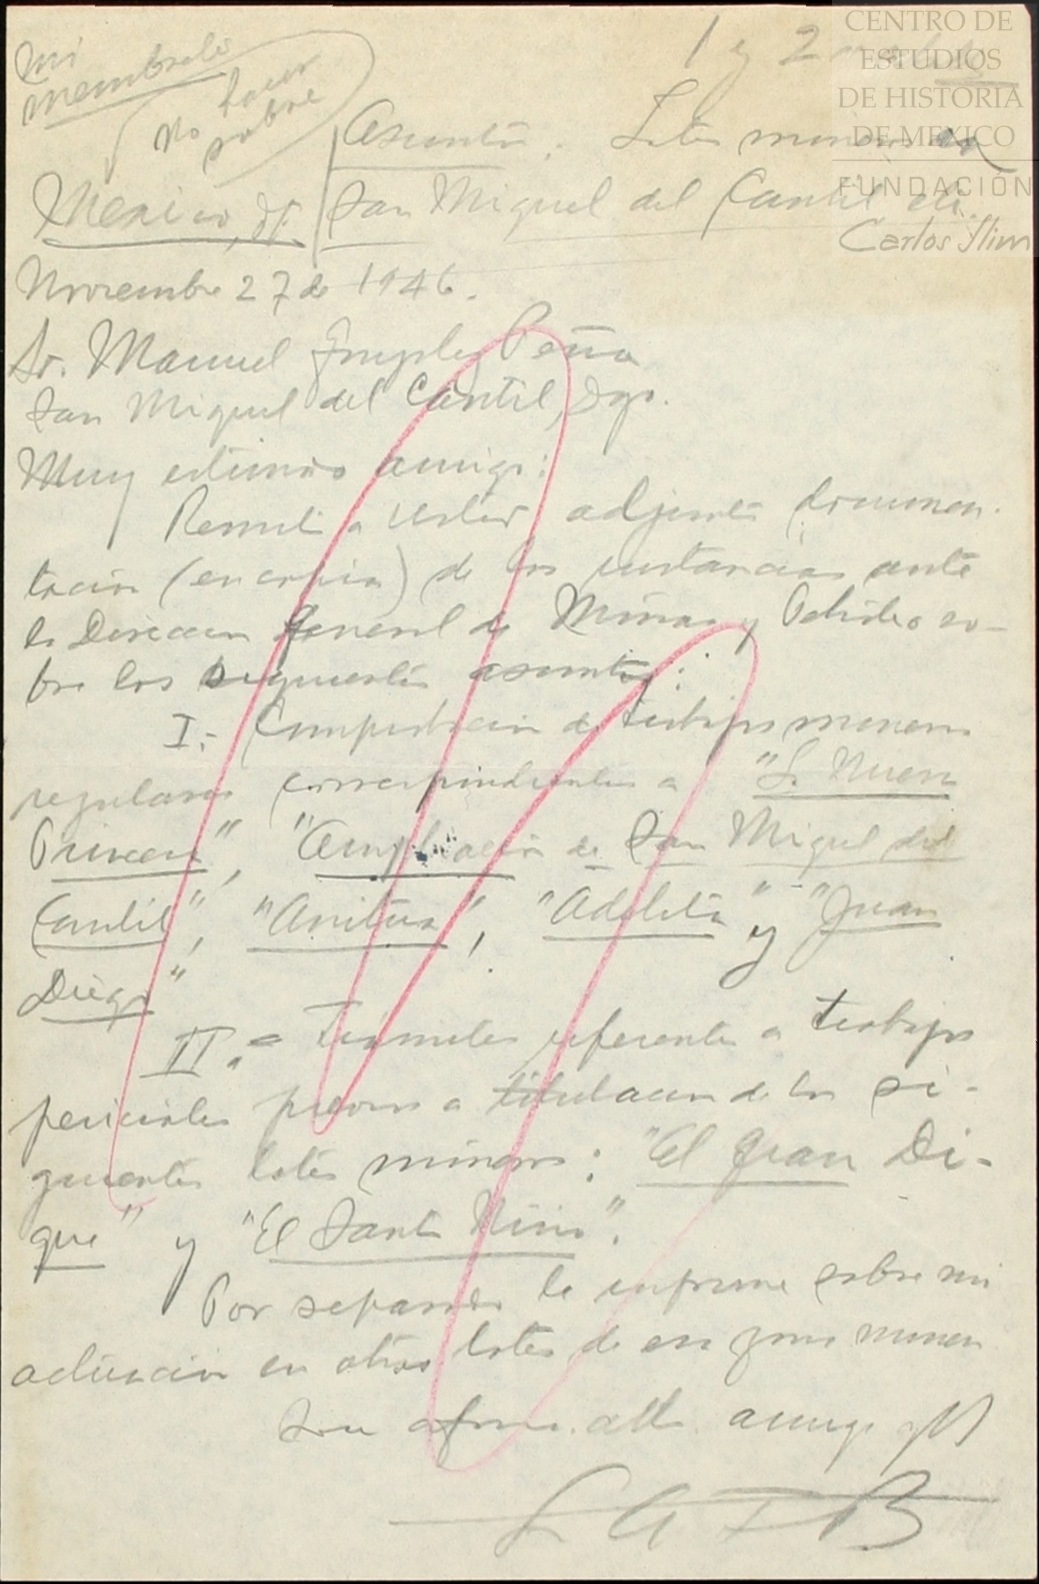 mi
membrete
No hacer
sobre
1 y 2
CENTRO DE
ESTUDIOS
DE HISTORIA
DE MEXICO
FUNDACIÓN
Carlos Slim
Asunto: Lotes mineros en
San Miguel del Cantil etc.
Mexico, D.F.
Noviembre 27 de 1946.
Sr. Manuel González Peña
San Miguel del Cantil, Dgo.
Muy estimado amigo:
Remito a usted adjunto documen-
tación (en copia) de las instancias ante
la Direccion General de Minas y Petróleo so-
bre los siguientes asuntos:
I.- Comprobación de trabajos mineros
regulares correspondientes a "La Nueva
Primavera", "Ampliación de San Miguel del
Cantil", "Anitua", "Adelita" y "Juan
Diego"
II.= Trámites referentes a trabajos
periciales previos a titulacion de los si-
guientes lotes mineros: "El Gran Di-
que" y "El Santo Niño".
Por separado le informe sobre mi
actuación en otros lotes de esa zona minera
Su afmo. atto. amigo